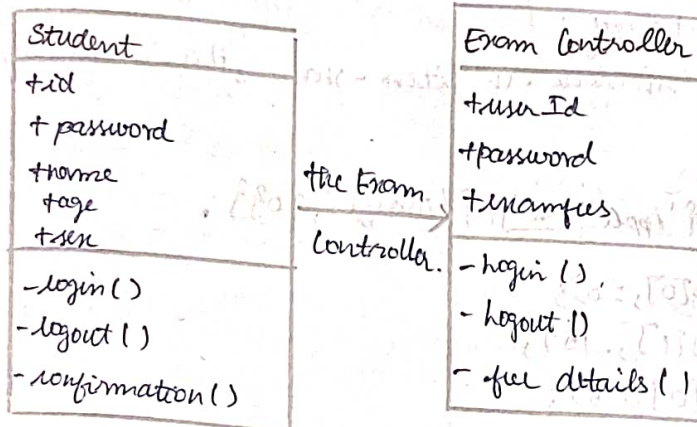 Student
+id
+ password
+name
+age
+sex
-login()
-logout()
-confirmation()
the Exam
Controller.
Exam Controller
+user Id
+password
+examfees
-Login ().
- Logout ()
- fee details ()